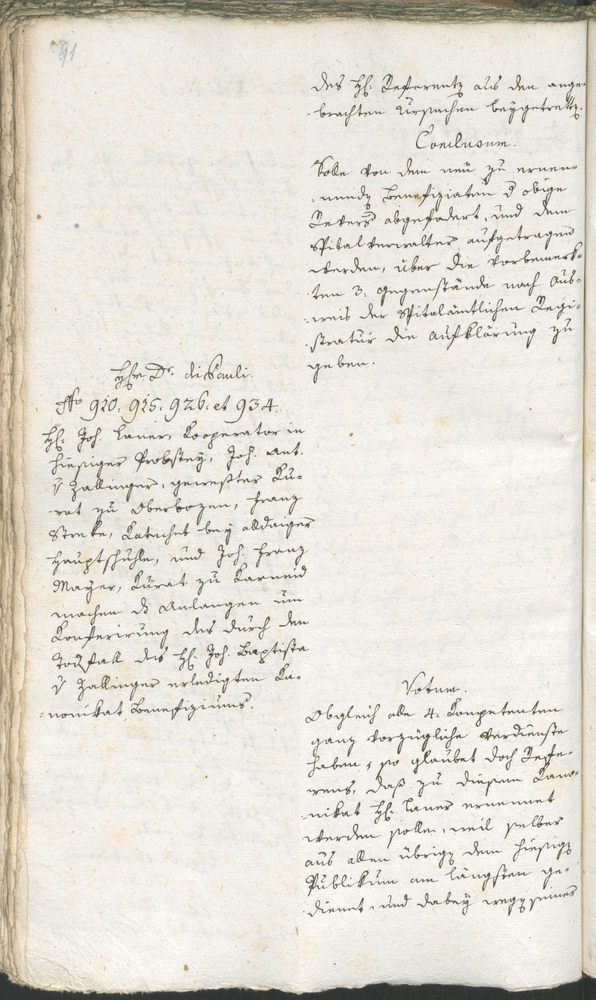 91
des H: Referentz aus den ange-
brachten Ursachen beygetrettz.
Conclusum.
Solle von dem neü zu ernen-
nendz Benefiziaten d obige
Revers abgefodert, und dem
Spitalverwalter aufgetragen
werden, über die vorbemerk-
ten 3. Gegenstände nach Aus-
weis der Spitalämtlichen Regi-
stratur die Aufklärung zu
geben.
Hr Dr. di Pauli.
No 910. 915. 926. et 934.
H: Joh. Laner, Kooperator in
hiesiger Probstey, Joh. Ant.
v Zallinger, gewester Ku-
rat zu Oberbozen, Franz
Strele, Catechet bey alldaiger
Hauptschulle, und Joh. Franz
Mayer, Kurat zu Karneid
machen ds Anlangen um
Conferirung des durch den
Todfall des H: Joh. Baptista
v Zallinger erledigten Ka-
nonikat Benefiziums.
Votum.
Obgleich alle 4. Kompetenten
ganz vorzügliche Verdienste
haben, so glaubet doch Refe-
rens, daß zu diesem Kano-
nikat H: Laner ernennet
werden solle, weil selber
aus allen übrigz dem hiesigz
Publikum am längsten ge-
dienet, und dabey wegz seiner